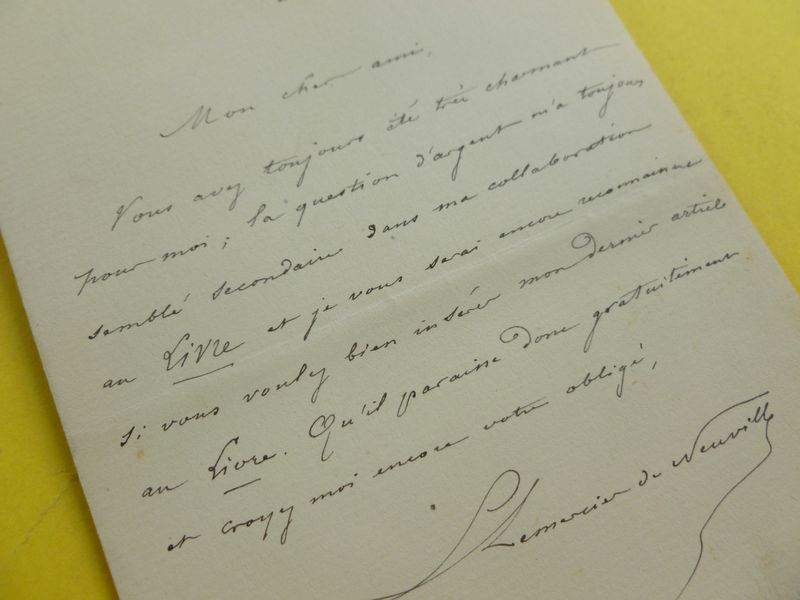 Mon cher ami,
Vous avez toujours été très charmant
pour moi; la question d'argent m'a toujours
semblé secondaire dans ma collaboration
au Livre et je vous serai encore reconnaissant
si vous voulez bien insérer mon dernier article
au Livre. Qu'il paraisse donc gratuitement
et croyez moi encore votre obligé,
Lemercier de Neuville